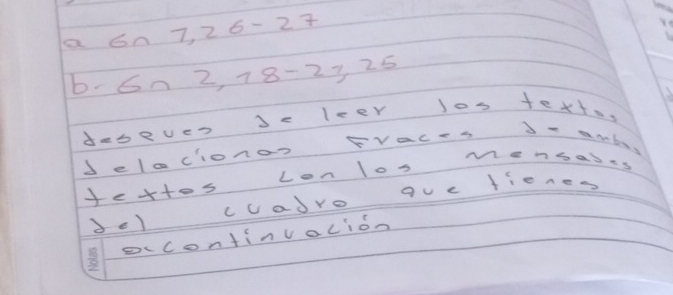 a Gn 1,26-27
b- Gn 2,18-23,25
despues de leer los textos
relacionas fraces de ambos
textos con los mensajes
del cuadro que tienes
a continuación
Notes